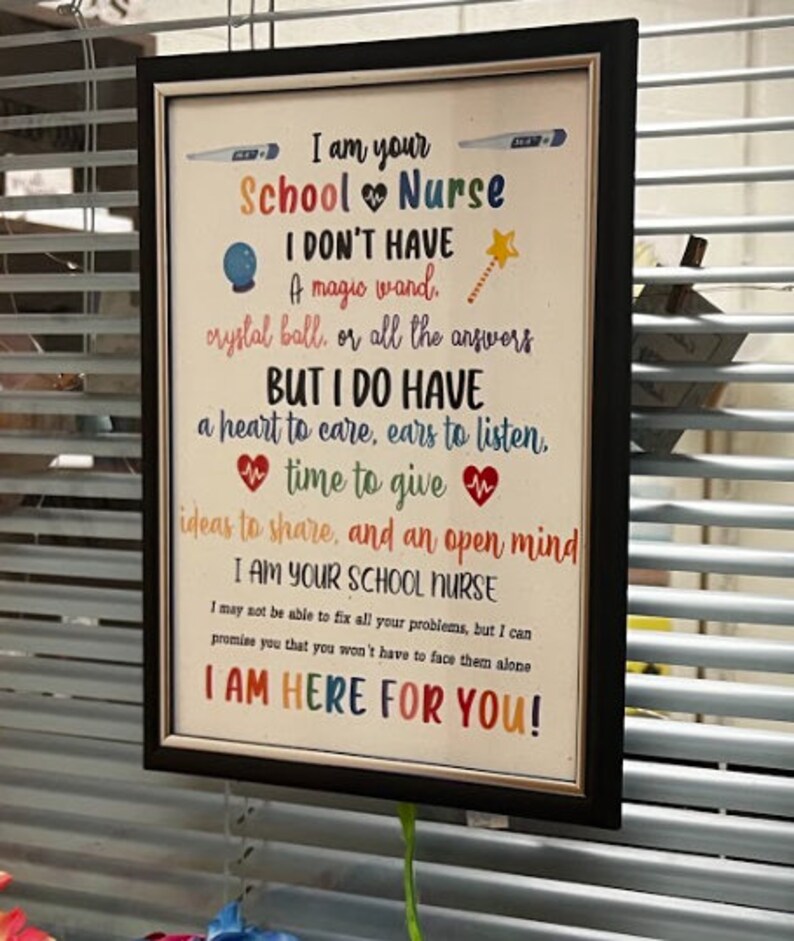 I am your
School Nurse
I DON'T HAVE
A magic wand,
crystal ball, or all the answers
BUT I DO HAVE
a heart to care, ears to listen,
time to give
ideas to share, and an open mind
I AM YOUR SCHOOL NURSE
I may not be able to fix all your problems, but I can
promise you that you won't have to face them alone
I AM HERE FOR YOU!